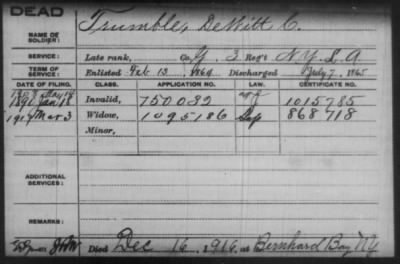 DEAD
NAME OF SOLDIER: Trumble, DeWitt C.
SERVICE: Late rank, Co. G, 3 Reg't N.Y. L. A.
TERM OF SERVICE: Enlisted Feb 13, 1864 Discharged July 7, 1865
DATE OF FILING. CLASS. APPLICATION NO. LAW. CERTIFICATE NO.
1890 Jan 18 Invalid, 750032 1015785
1917 Mar 3 Widow, 1095186 868718
Minor,
ADDITIONAL SERVICES:
REMARKS:
Died Dec 16, 1916, at Bernhard Bay, NY